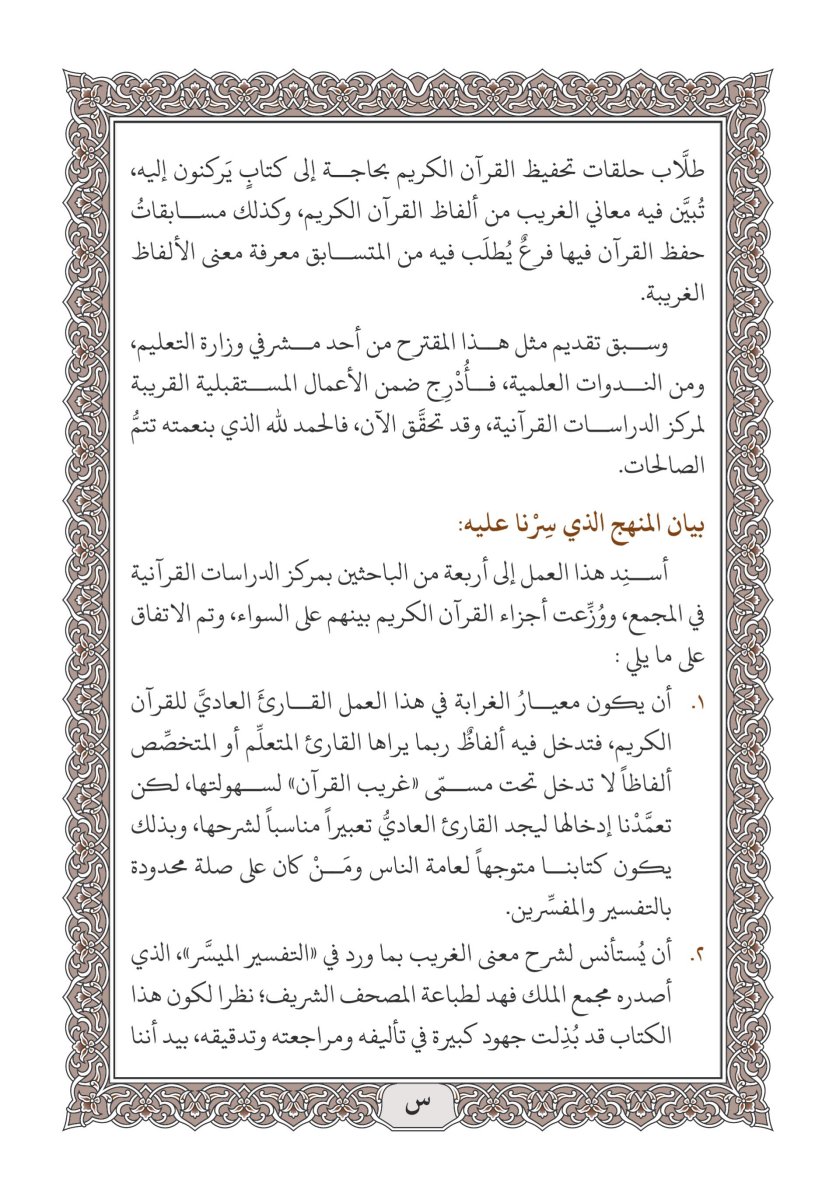 طلَّاب حلقات تحفيظ القرآن الكريم بحاجة إلى كتابٍ يَركنون إليه،
تُبيَّن فيه معاني الغريب من ألفاظ القرآن الكريم، وكذلك مسابقاتُ
حفظ القرآن فيها فرعٌ يُطلَب فيه من المتسابق معرفة معنى الألفاظ
الغريبة.
وسبق تقديم مثل هذا المقترح من أحد مشرفي وزارة التعليم،
ومن الندوات العلمية، فأُدْرِج ضمن الأعمال المستقبلية القريبة
لمركز الدراسات القرآنية، وقد تحقَّق الآن، فالحمد لله الذي بنعمته تتمُّ
الصالحات.
بيان المنهج الذي سِرْنا عليه:
أسنِد هذا العمل إلى أربعة من الباحثين بمركز الدراسات القرآنية
في المجمع، ووُزِّعت أجزاء القرآن الكريم بينهم على السواء، وتم الاتفاق
على ما يلي :
١. أن يكون معيارُ الغرابة في هذا العمل القارئَ العاديَّ للقرآن
الكريم، فتدخل فيه ألفاظٌ ربما يراها القارئ المتعلِّم أو المتخصِّص
ألفاظاً لا تدخل تحت مسمّى «غريب القرآن» لسهولتها، لكن
تعمَّدْنا إدخالها ليجد القارئ العاديُّ تعبيراً مناسباً لشرحها، وبذلك
يكون كتابنا متوجهاً لعامة الناس ومَنْ كان على صلة محدودة
بالتفسير والمفسِّرين.
٢. أن يُستأنس لشرح معنى الغريب بما ورد في «التفسير الميسَّر»، الذي
أصدره مجمع الملك فهد لطباعة المصحف الشريف؛ نظرا لكون هذا
الكتاب قد بُذِلت جهود كبيرة في تأليفه ومراجعته وتدقيقه، بيد أننا
س